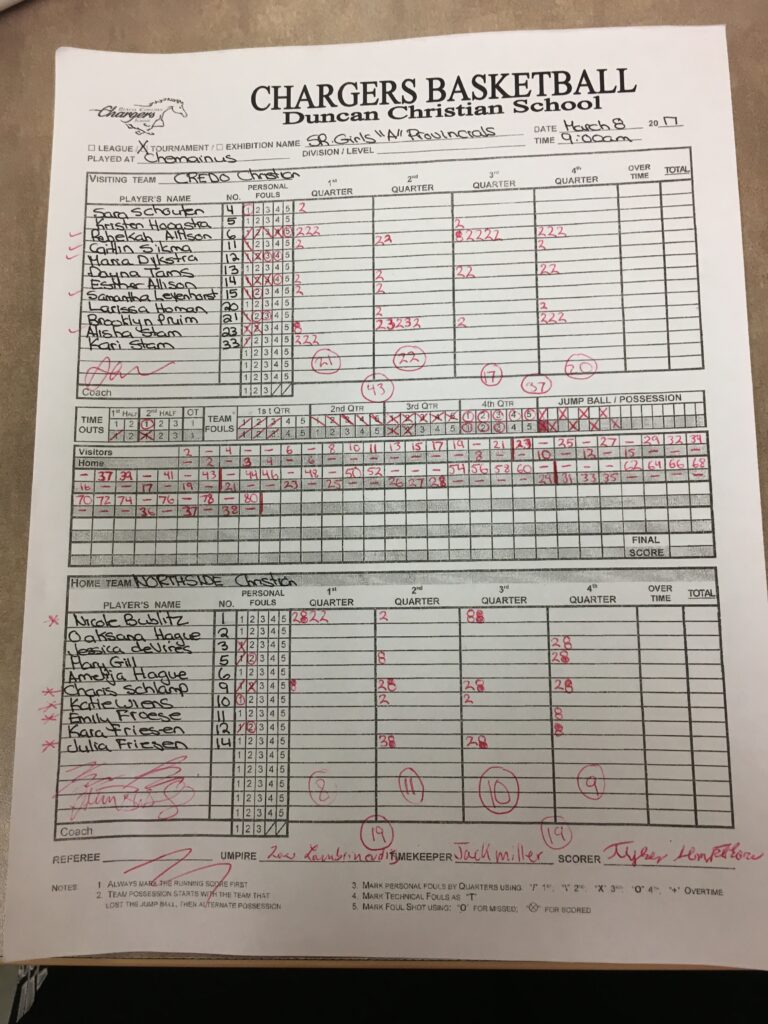 CHARGERS BASKETBALL
Duncan Christian School
Chargers
□ LEAGUE / X TOURNAMENT / □ EXHIBITION NAME SR. Girls "A" Provincials DATE March 8 2017
PLAYED AT Chemainus DIVISION / LEVEL TIME 9:00am
VISITING TEAM CREDO Christian
PLAYER'S NAME NO. PERSONAL FOULS 1st QUARTER 2nd QUARTER 3rd QUARTER 4th QUARTER OVER TIME TOTAL
Sara Schouten 4 1 2 3 4 5 2
Kristen Hoogstra 5 1 2 3 4 5 2
Rebekah Allison 6 222 2222 222
Caitlin Sikma 11 2 22 2
Maria Dykstra 12
Dayna Tams 13 22 22
Esther Allison 14 2 2
Samantha Leyenhorst 15 2 2
Larissa Homan 20 2 2
Brooklyn Pruim 21 222
Alisha Stam 23 23232 2
Kari Stam 33 222
21 22 17 20
Coach 1 2 3 43 37
TIME OUTS 1st HALF 2nd HALF OT TEAM FOULS 1st QTR 2nd QTR 3rd QTR 4th QTR JUMP BALL / POSSESSION
Visitors 2 - 4 - - 6 - 8 10 11 13 15 17 19 - 21 23 - 25 - 27 - 29 32 34
Home - 2 - 3 - 4 - 8 - 10 - 12 - 15 - - -
- 37 39 - 41 - 43 - 44 46 - 48 - 50 52 - - - 54 56 58 60 - - - 62 64 66 68
16 - - 17 - 19 - 21 - - 23 - 25 - - 26 27 28 - - - - 29 31 33 35 - - - -
70 72 74 - 76 - 78 - 80
- - - 36 - 37 - 38 -
FINAL
SCORE
HOME TEAM NORTHSIDE Christian
PLAYER'S NAME NO. PERSONAL FOULS 1st QUARTER 2nd QUARTER 3rd QUARTER 4th QUARTER OVER TIME TOTAL
Nicole Bublitz 1 1 2 3 4 5 2 22 2
Oaksana Hague 2 1 2 3 4 5
Jessica deVries 3 2
Mary Gill 5 2
Amelija Hague 6 1 2 3 4 5
Charis Schlamp 9 2 2 2
Katie Wiens 10 2 2
Emily Froese 11 1 2 3 4 5
Kara Friesen 12
Julia Friesen 14 1 2 3 4 5 3 2
8 11 10 9
Coach 1 2 3 19 19
REFEREE UMPIRE TIMEKEEPER Jack miller SCORER
NOTES 1 ALWAYS MARK THE RUNNING SCORE FIRST
2 TEAM POSSESSION STARTS WITH THE TEAM THAT
LOST THE JUMP BALL, THEN ALTERNATE POSSESSION
3. MARK PERSONAL FOULS BY QUARTERS USING "/" 1st, "\" 2nd, "X" 3rd, "O" 4th, "+" OVERTIME
4. MARK TECHNICAL FOULS AS "T"
5. MARK FOUL SHOT USING: "O" FOR MISSED, "⊗" FOR SCORED